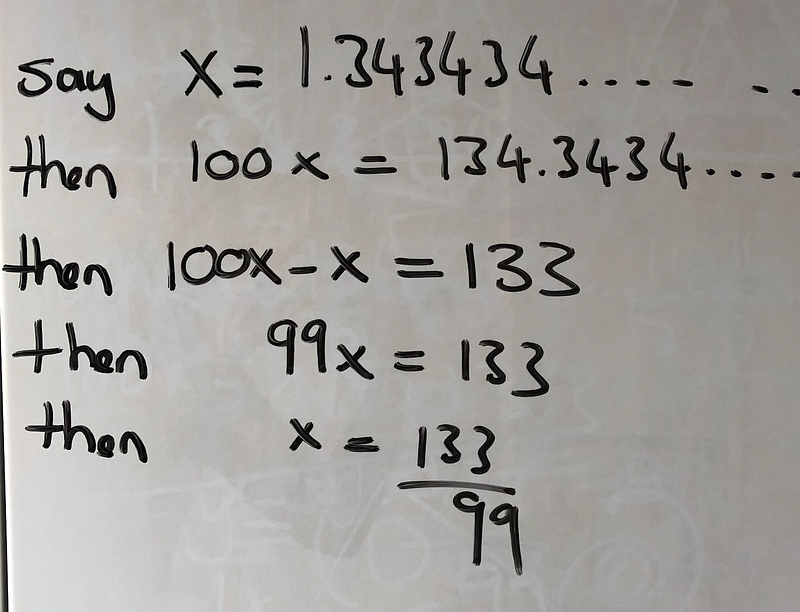 say x = 1.343434.... ..
then 100x = 134.3434....
then 100x - x = 133
then 99x = 133
then x = 133
99